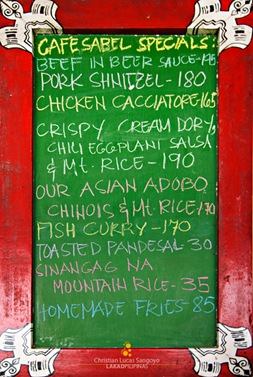 CAFE SABEL SPECIALS:
BEEF IN BEER SAUCE-195
PORK SHNITZEL-180
CHICKEN CACCIATORE-165
CRISPY CREAM DORY,
CHILI EGGPLANT SALSA
& Mt. RICE-190
OUR ASIAN ADOBO
CHINOIS & Mt RICE-170
FISH CURRY-170
TOASTED PANDESAL-30
SINANGAG NA
MOUNTAIN RICE-35
HOMEMADE FRIES-85
Christian Lucas Sangoyo
LAKADPILIPINAS